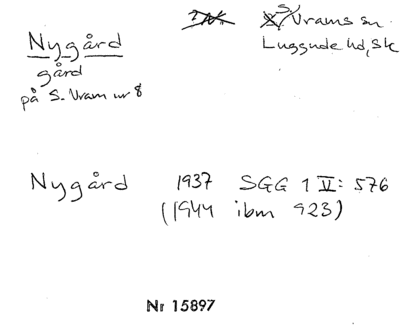 Nygård
S. Vrams sn
Luggude hd, Sk
gård
på S. Vram nr 8
Nygård 1937 SGG 1 V: 576
(1944 ibm 923)
Nr 15897